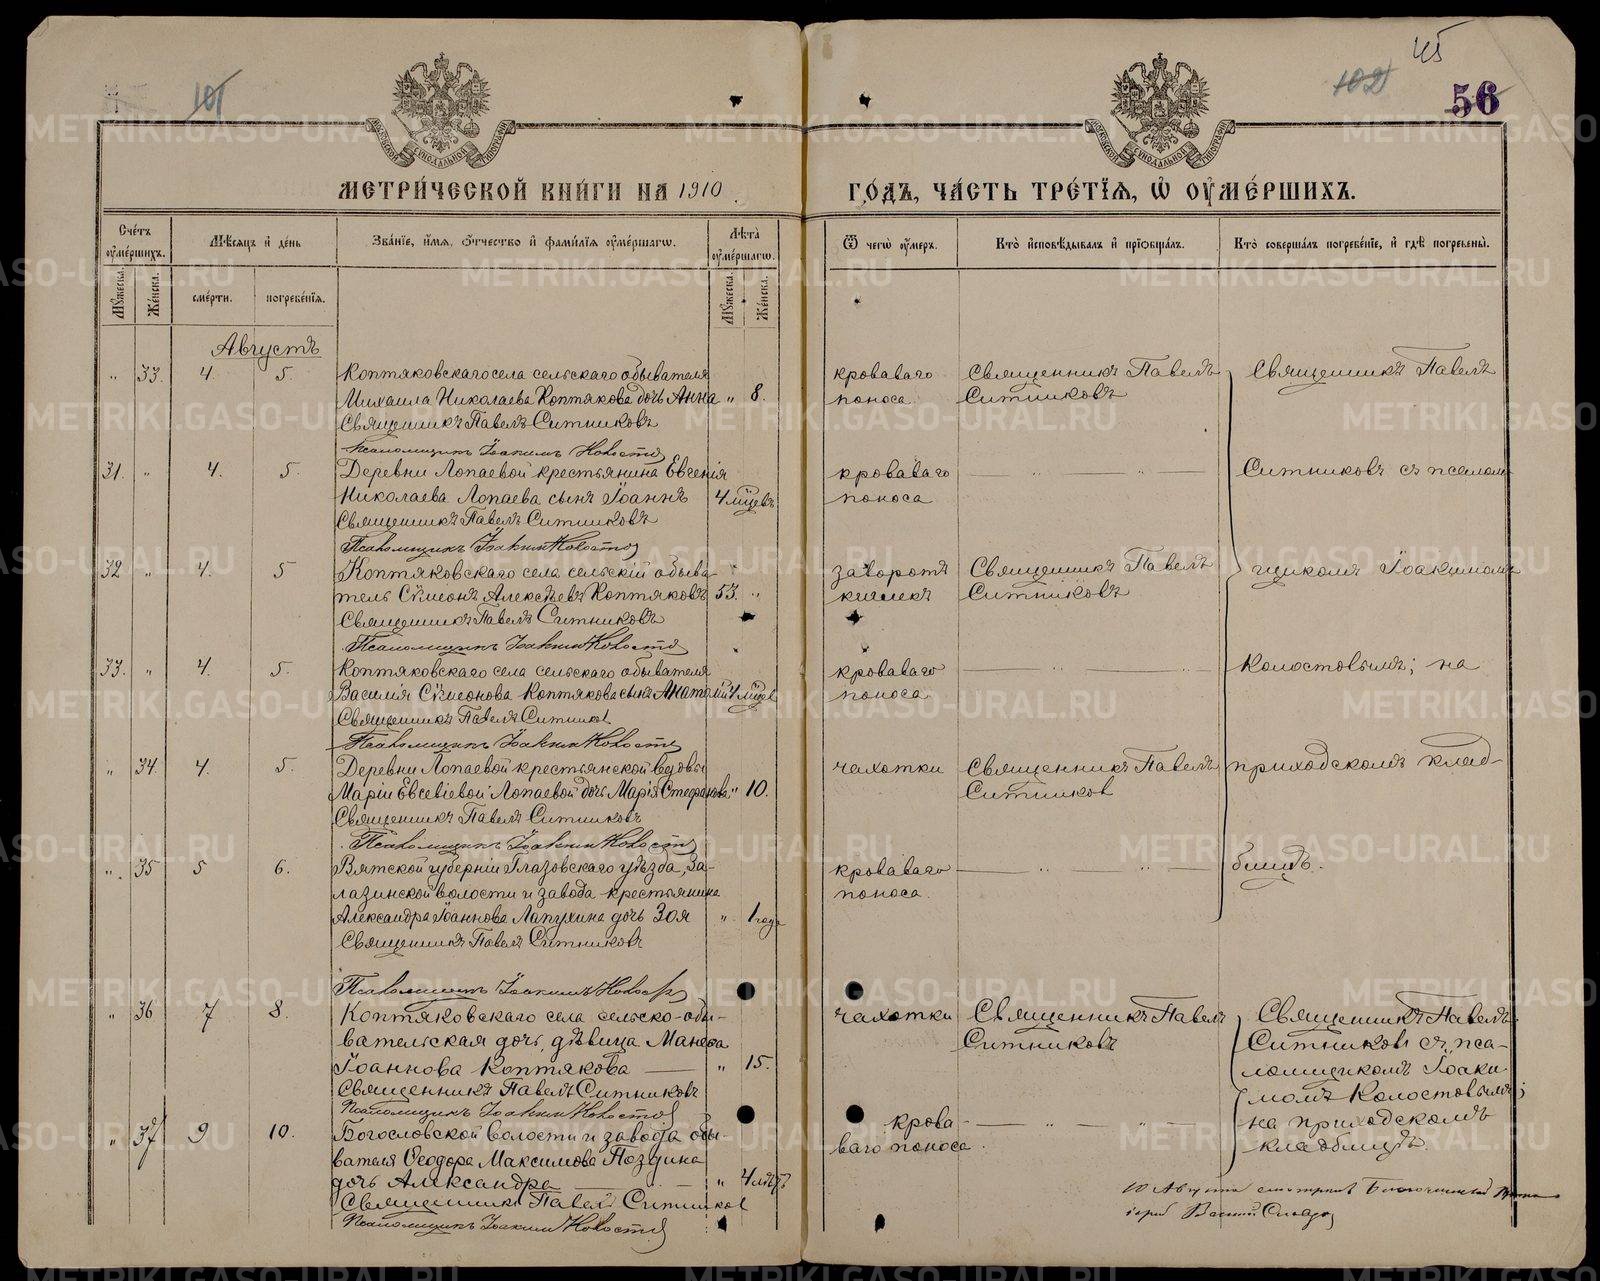 101
102
45
56
МЕТРИ́ЧЕСКОЙ КНИ́ГИ НА 1910
ГО́ДЪ, ЧА́СТЬ ТРЕ́ТЇѦ, Ѡ҆ ОУ҆МЕ́РШИХЪ.
Сче́тъ оу҆ме́ршихъ.
Мѣ́сѧцъ и҆ де́нь
Зва́нїе, и҆́мѧ, ѻ҆́тчество и҆ фами́лїѧ оу҆ме́ршагѡ.
Лѣ́та оу҆ме́ршагѡ.
Ѿ чегѡ̀ оу҆́меръ.
Кто̀ и҆сповѣ́дывалъ и҆ прїѻбща́лъ.
Кто̀ соверша́лъ погребе́нїе, и҆ гдѣ̀ погребены̀.
Мꙋ́жеска.
Же́нска.
сме́рти.
погребе́нїѧ.
Мꙋ́жеска.
Же́нска.
Августъ
" 33. 4. 5. Коптяковскаго села сельскаго обывателя
Михаила Николаева Коптякова дочь Анна " 8.
Священникъ Павелъ Ситниковъ
Псаломщикъ Іоакимъ
кроваваго
поноса.
Священникъ Павелъ
Ситниковъ
Священникъ Павелъ
31. " 4. 5. Деревни Лопаевой крестьянина Евгенія
Николаева Лопаева сынъ Іоаннъ 4 мѣсцевъ
Священникъ Павелъ Ситниковъ
Псаломщикъ Іоакимъ
кроваваго
поноса
— " — " —
Ситниковъ съ псалом-
32 " 4. 5 Коптяковскаго села сельскій обыва-
тель Сѵмеонъ Алексѣевъ Коптяковъ 53. "
Священникъ Павелъ Ситниковъ
Псаломщикъ Іоакимъ
заворотъ
кишекъ
Священникъ Павелъ
Ситниковъ
щикомъ Іоакимомъ
33. " 4. 5. Коптяковскаго села сельскаго обывателя
Василія Сѵмеонова Коптякова сынъ Анатолій 4 мѣсцев
Священникъ Павелъ Ситников
Псаломщикъ Іоакимъ
кроваваго
поноса
— " — " —
Колостовымъ; на
" 34. 4. 5. Деревни Лопаевой крестьянской вдовы
Маріи Евсевіевой Лопаевой дочь Марія Стефанова " 10.
Священникъ Павелъ Ситниковъ
Псаломщикъ Іоакимъ
чахотки
Священникъ Павелъ
Ситников
приходскомъ клад-
". 35 5 6. Вятской губерніи Глазовскаго уѣзда, За-
лазинской волости и завода крестьянина
Александра Іоаннова Лапухина дочь Зоя " 1 года
Священникъ Павелъ Ситниковъ
Псаломщикъ Іоакимъ
кроваваго
поноса.
— " — " —
бищѣ.
" 36 7 8. Коптяковскаго села сельско-обы-
вательская дочь, дѣвица Манефа
Іоаннова Коптякова — " 15.
Священникъ Павелъ Ситниковъ
Псаломщикъ Іоакимъ
чахотки
Священникъ Павелъ
Ситниковъ
Священникъ Павелъ
Ситников съ пса-
ломщикомъ Іоаки-
момъ Колостовымъ;
на приходскомъ
кладбищѣ.
" 37 9 10. Богословской волости и завода обы-
вателя Ѳеодора Максимова Поздина
дочь Александра — " 4 лѣтъ
Священникъ Павел Ситников
Псаломщикъ Іоакимъ
крова-
ваго поноса.
— " — " —
10 Августа смотрѣлъ Благочинный
іерей Василій
METRIKI.GASO-URAL.RU